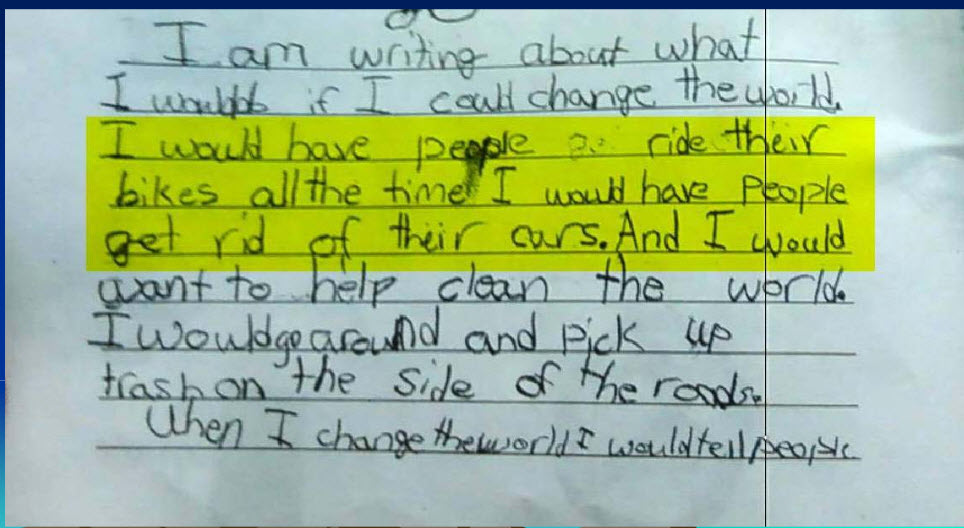 I am writing about what
I would if I could change the world.
I would have people ride their
bikes all the time I would have people
get rid of their cars. And I would
want to help clean the world.
I would go around and pick up
trash on the side of the roads.
When I change the world I would tell people